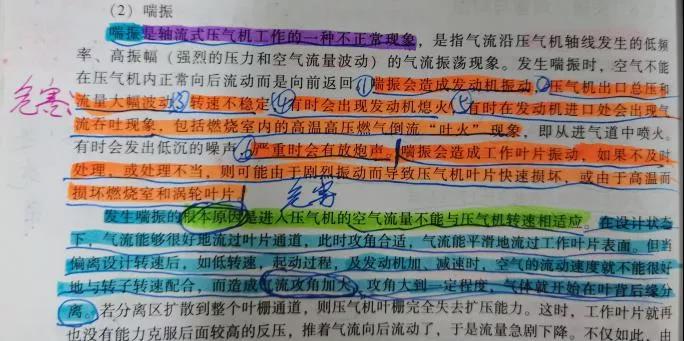 (2) 喘振
喘振是轴流式压气机工作的一种不正常现象，是指气流沿压气机轴线发生的低频
率、高振幅（强烈的压力和空气流量波动）的气流振荡现象。发生喘振时，空气不能
在压气机内正常向后流动而是向前返回①喘振会造成发动机振动②压气机出口总压和
危害：流量大幅波动③转速不稳定④有时会出现发动机熄火⑤有时在发动机进口处会出现气
流吞吐现象，包括燃烧室内的高温高压燃气倒流“吐火”现象，即从进气道中喷火。
有时会发出低沉的噪声⑥严重时会有放炮声。喘振会造成工作叶片振动，如果不及时
处理，或处理不当，则可能由于剧烈振动而导致压气机叶片快速损坏，或由于高温而
损坏燃烧室和涡轮叶片
危害
发生喘振的根本原因是进入压气机的空气流量不能与压气机转速相适应。在设计状态
下，气流能够很好地流过叶片通道，此时攻角合适，气流能平滑地流过工作叶片表面。但当
偏离设计转速后，如低转速，起动过程，及发动机加、减速时，空气的流动速度就不能很好
地与转子转速配合，而造成气流攻角加大，攻角大到一定程度，气体就开始在叶背后缘分
离。若分离区扩散到整个叶栅通道，则压气机叶栅完全失去扩压能力。这时，工作叶片就再
也没有能力克服后面较高的反压，推着气流向后流动了，于是流量急剧下降。不仅如此，由